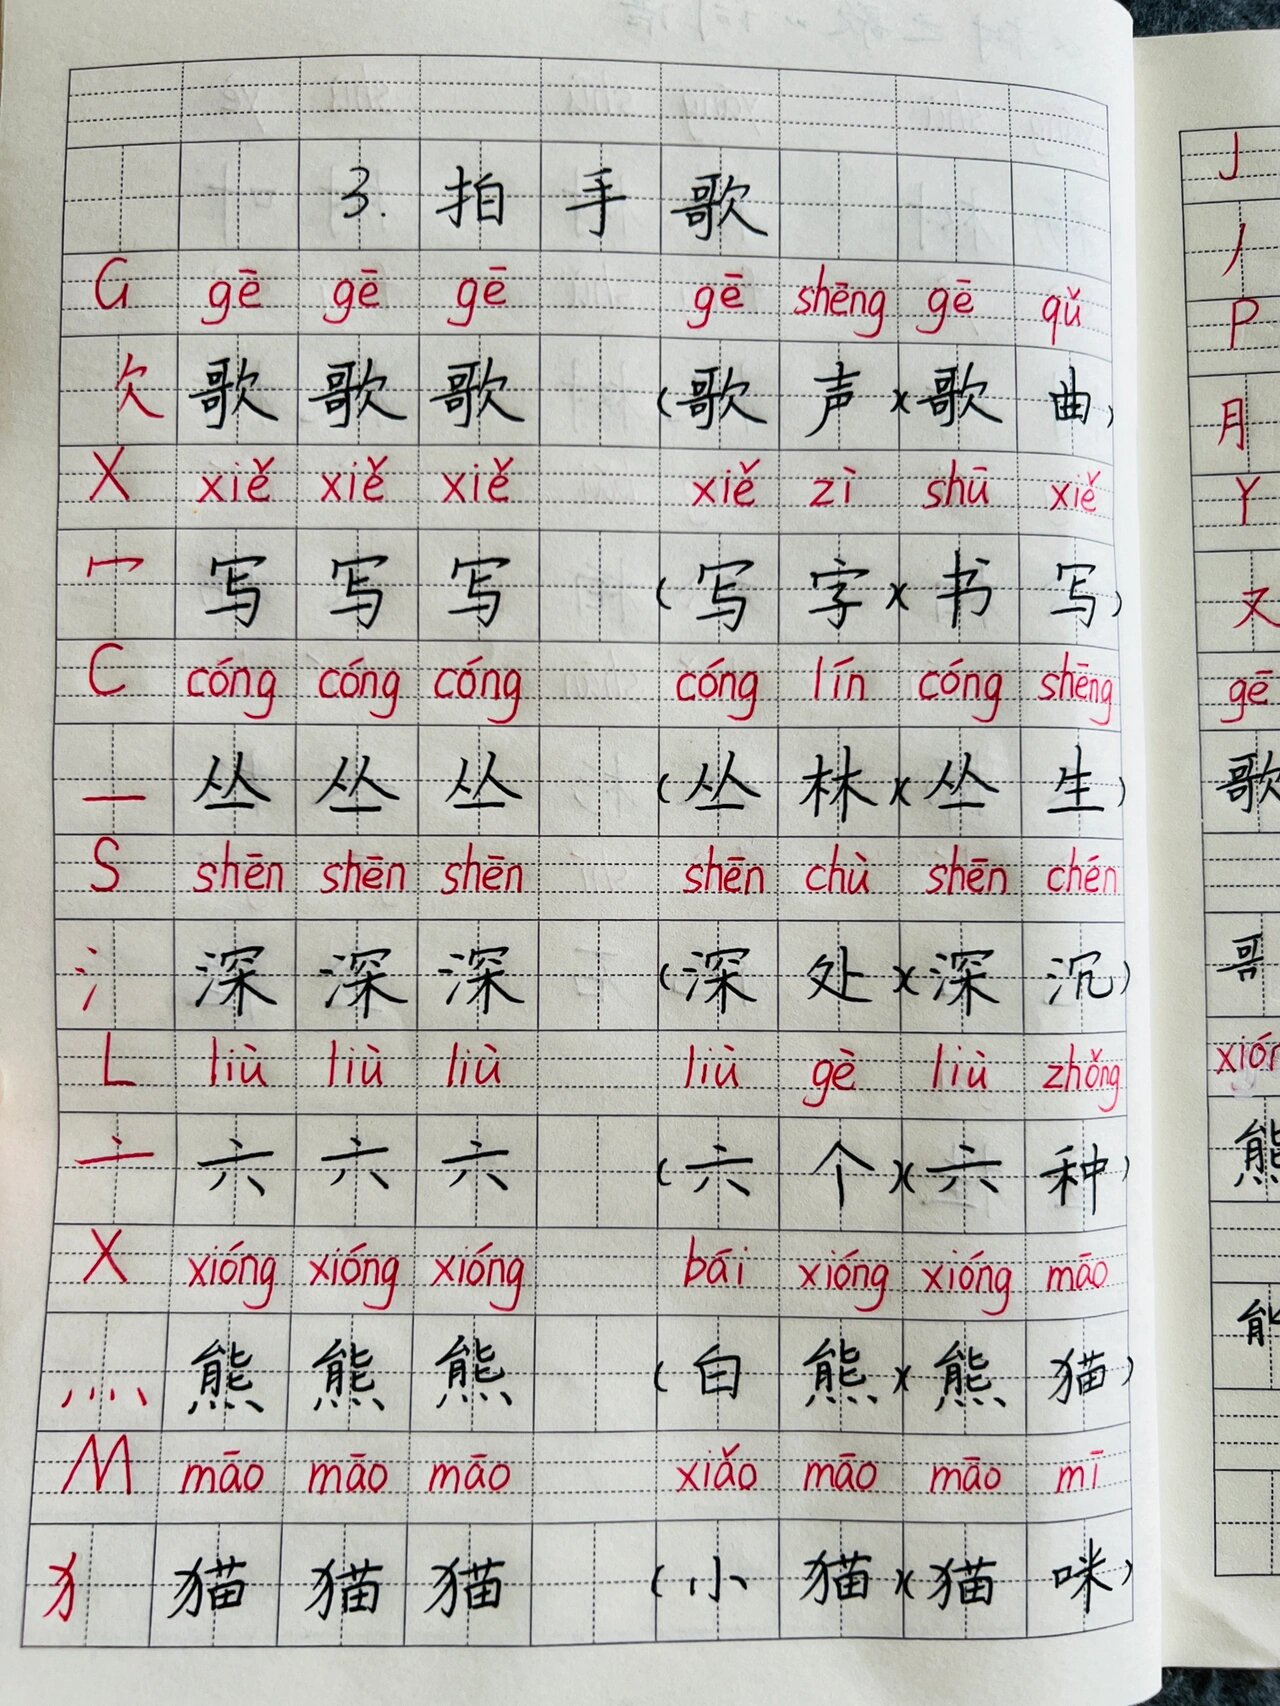 3. 拍 手 歌
G gē gē gē gē shēng gē qǔ
欠 歌 歌 歌 (歌 声)(歌 曲)
X xiě xiě xiě xiě zì shū xiě
冖 写 写 写 (写 字)(书 写)
C cóng cóng cóng cóng lín cóng shēng
一 丛 丛 丛 (丛 林)(丛 生)
S shēn shēn shēn shēn chù shēn chén
氵 深 深 深 (深 处)(深 沉)
L liù liù liù liù gè liù zhǒng
亠 六 六 六 (六 个)(六 种)
X xióng xióng xióng bái xióng xióng māo
灬 熊 熊 熊 (白 熊)(熊 猫)
M māo māo māo xiǎo māo māo mī
犭 猫 猫 猫 (小 猫)(猫 咪)
J
丿
P
月
Y
又
gē
歌
哥
熊
能